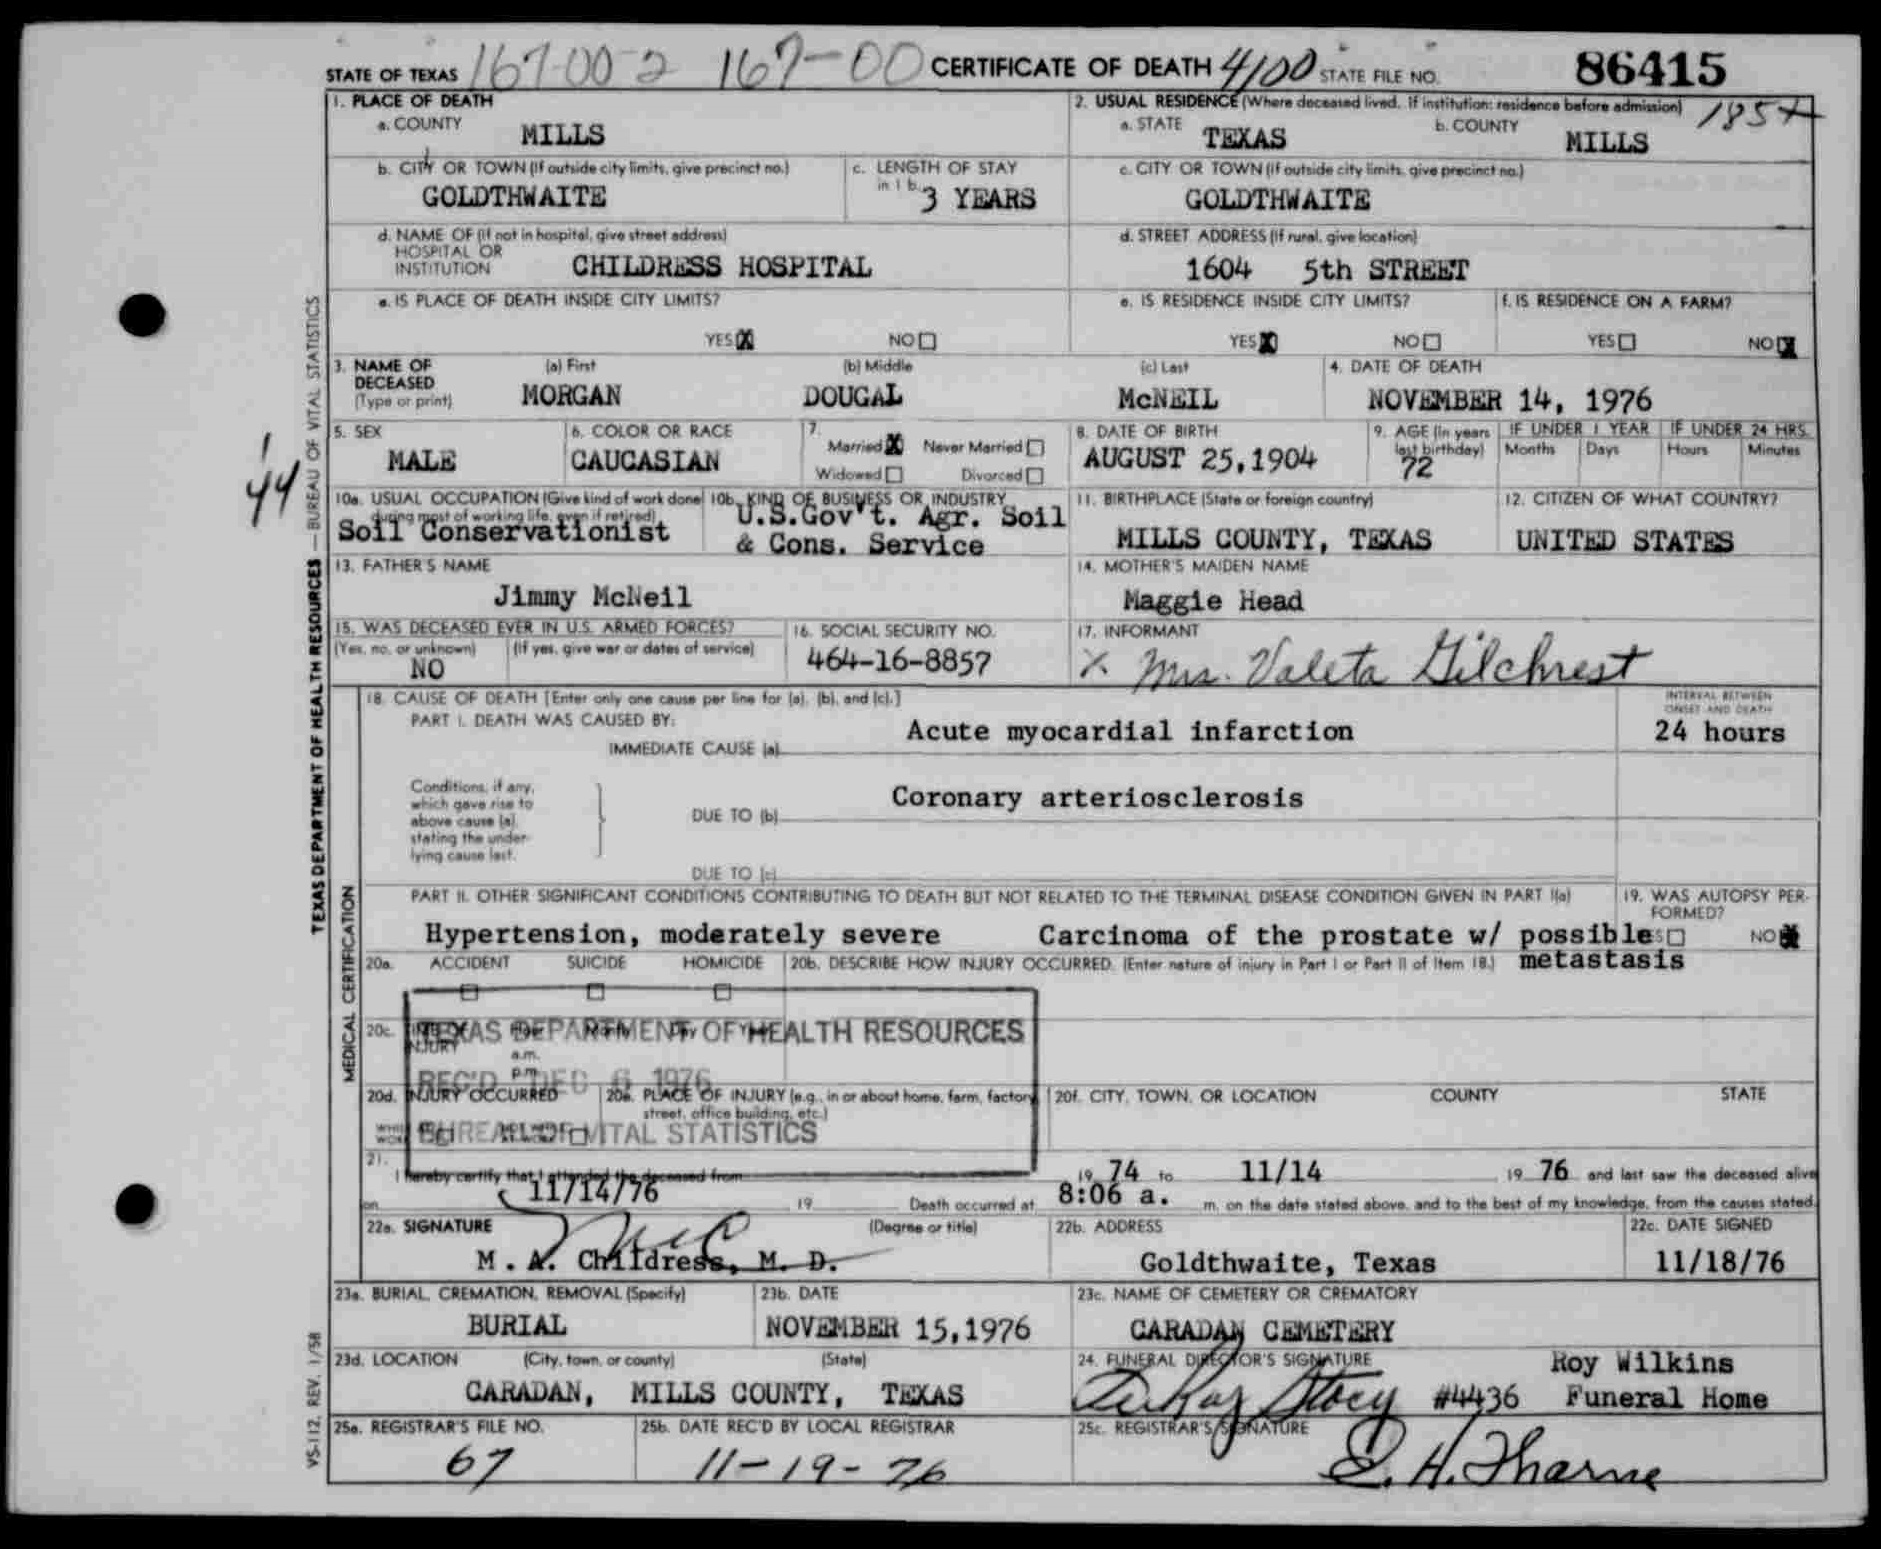 STATE OF TEXAS 167-00-2 167-00 CERTIFICATE OF DEATH 4100 STATE FILE NO. 86415
1. PLACE OF DEATH
a. COUNTY MILLS
2. USUAL RESIDENCE (Where deceased lived. If institution: residence before admission)
a. STATE TEXAS b. COUNTY MILLS
b. CITY OR TOWN (If outside city limits, give precinct no.) GOLDTHWAITE
c. LENGTH OF STAY in 1 b. 3 YEARS
c. CITY OR TOWN (If outside city limits, give precinct no.) GOLDTHWAITE
d. NAME OF (If not in hospital, give street address)
HOSPITAL OR
INSTITUTION CHILDRESS HOSPITAL
d. STREET ADDRESS (If rural, give location)
1604 5th STREET
e. IS PLACE OF DEATH INSIDE CITY LIMITS?
YES X NO
e. IS RESIDENCE INSIDE CITY LIMITS?
YES X NO
f. IS RESIDENCE ON A FARM?
YES NO X
3. NAME OF DECEASED (Type or print)
(a) First MORGAN (b) Middle DOUGAL (c) Last McNEIL
4. DATE OF DEATH
NOVEMBER 14, 1976
5. SEX MALE
6. COLOR OR RACE CAUCASIAN
7. Married X Never Married
Widowed Divorced
8. DATE OF BIRTH AUGUST 25,1904
9. AGE (In years last birthday) 72
IF UNDER 1 YEAR Months Days
IF UNDER 24 HRS. Hours Minutes
10a. USUAL OCCUPATION (Give kind of work done during most of working life, even if retired)
Soil Conservationist
10b. KIND OF BUSINESS OR INDUSTRY
U.S.Gov't. Agr. Soil
& Cons. Service
11. BIRTHPLACE (State or foreign country)
MILLS COUNTY, TEXAS
12. CITIZEN OF WHAT COUNTRY?
UNITED STATES
13. FATHER'S NAME
Jimmy McNeil
14. MOTHER'S MAIDEN NAME
Maggie Head
15. WAS DECEASED EVER IN U.S. ARMED FORCES?
(Yes, no, or unknown) (If yes, give war or dates of service)
NO
16. SOCIAL SECURITY NO.
464-16-8857
17. INFORMANT
X Mrs. Valeta Gilchrest
18. CAUSE OF DEATH [Enter only one cause per line for (a), (b), and (c).]
INTERVAL BETWEEN ONSET AND DEATH
PART I. DEATH WAS CAUSED BY:
IMMEDIATE CAUSE (a) Acute myocardial infarction 24 hours
Conditions, if any,
which gave rise to
above cause (a)
stating the under-
lying cause last.
DUE TO (b) Coronary arteriosclerosis
DUE TO (c)
PART II. OTHER SIGNIFICANT CONDITIONS CONTRIBUTING TO DEATH BUT NOT RELATED TO THE TERMINAL DISEASE CONDITION GIVEN IN PART I(a)
Hypertension, moderately severe Carcinoma of the prostate w/ possible
metastasis
19. WAS AUTOPSY PER-
FORMED?
NO X
20a. ACCIDENT SUICIDE HOMICIDE
20b. DESCRIBE HOW INJURY OCCURRED. (Enter nature of injury in Part I or Part II of Item 18.)
20c. INJURY
a.m.
p.m.
TEXAS DEPARTMENT OF HEALTH RESOURCES
REC'D DEC 6 1976
BUREAU OF VITAL STATISTICS
20d. INJURY OCCURRED
20e. PLACE OF INJURY (e.g., in or about home, farm, factory,
street, office building, etc.)
20f. CITY, TOWN, OR LOCATION COUNTY STATE
21. I hereby certify that I attended the deceased from 19 74 to 11/14 19 76 and last saw the deceased alive
on 11/14/76 19 Death occurred at 8:06 a. m. on the date stated above, and to the best of my knowledge, from the causes stated.
22a. SIGNATURE (Degree or title)
M. A. Childress, M. D.
22b. ADDRESS
Goldthwaite, Texas
22c. DATE SIGNED
11/18/76
23a. BURIAL, CREMATION, REMOVAL (Specify)
BURIAL
23b. DATE
NOVEMBER 15,1976
23c. NAME OF CEMETERY OR CREMATORY
CARADAN CEMETERY
23d. LOCATION (City, town, or county) (State)
CARADAN, MILLS COUNTY, TEXAS
24. FUNERAL DIRECTOR'S SIGNATURE
Roy Wilkins
#4436 Funeral Home
25a. REGISTRAR'S FILE NO.
67
25b. DATE REC'D BY LOCAL REGISTRAR
11-19-76
25c. REGISTRAR'S SIGNATURE
TEXAS DEPARTMENT OF HEALTH RESOURCES — BUREAU OF VITAL STATISTICS
MEDICAL CERTIFICATION
VS-112, REV. 1/58
1
44